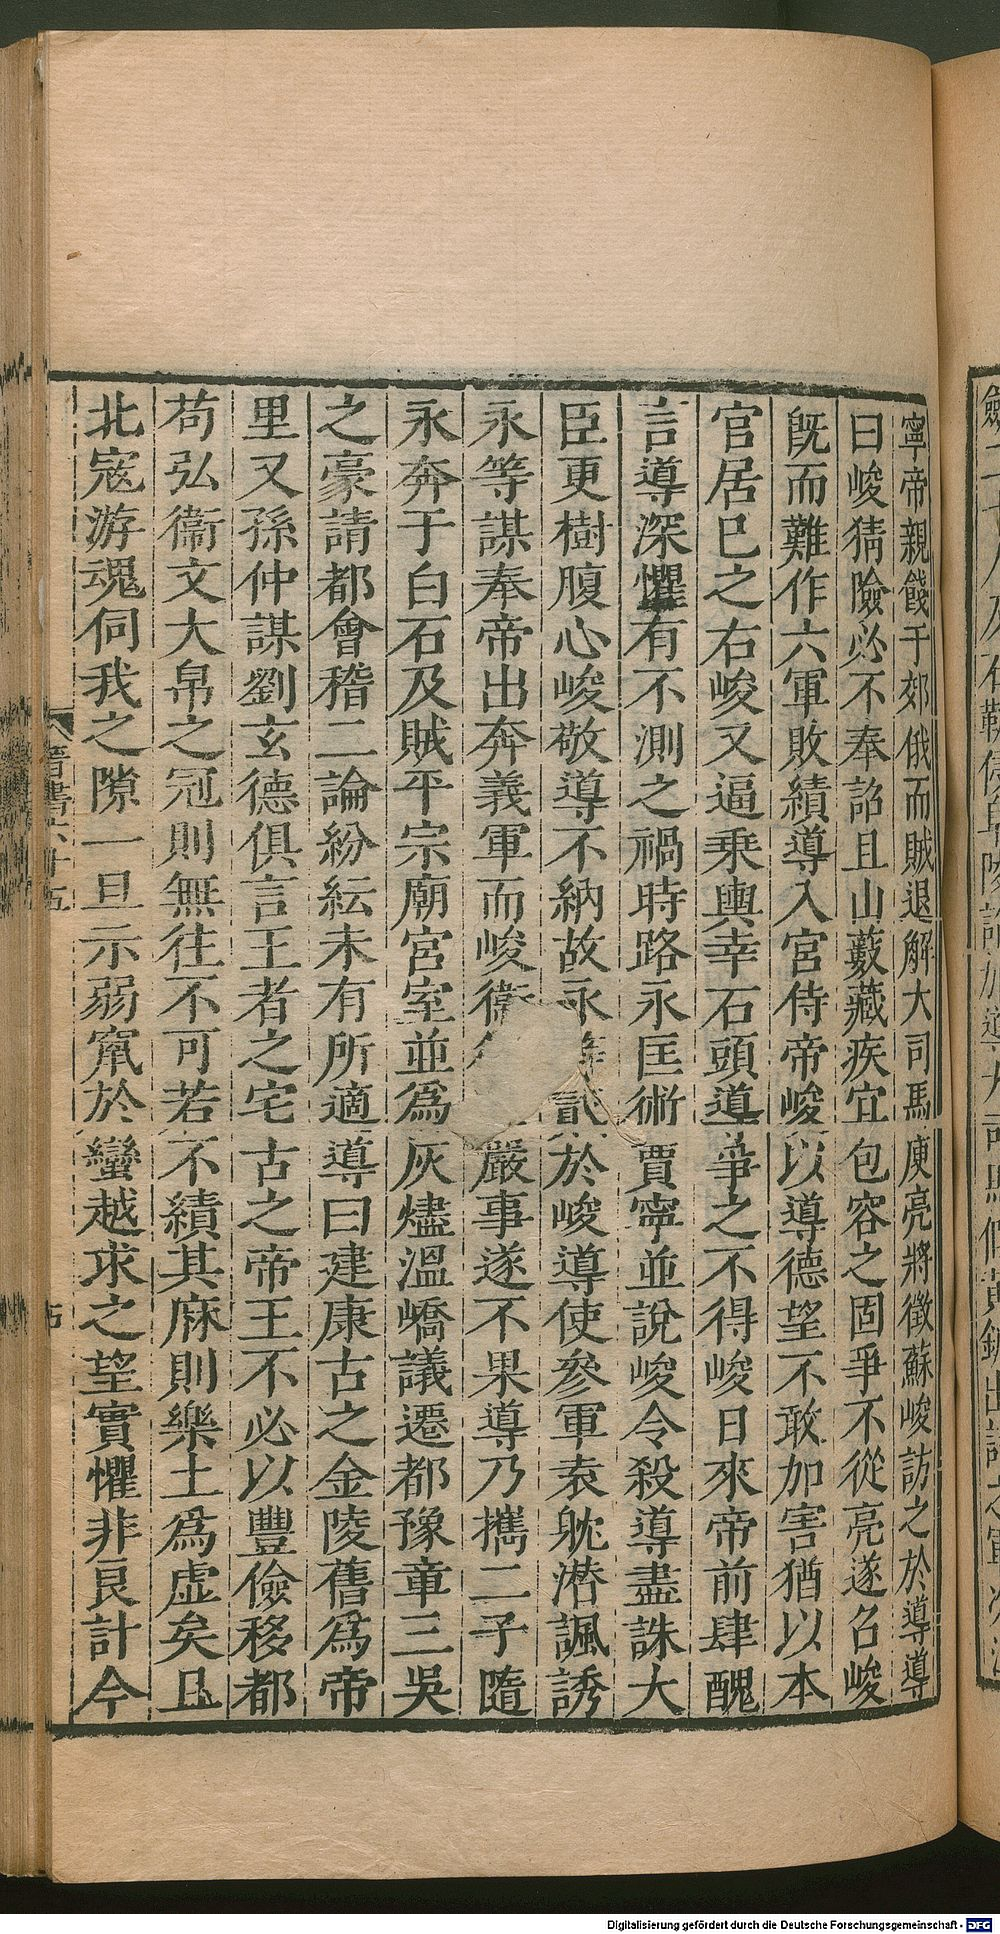 寧帝親餞于郊俄而賊退解大司馬庾亮將徵蘇峻訪之於導導
曰峻猜險必不奉詔且山藪藏疾宜包容之固爭不從亮遂召峻
旣而難作六軍敗績導入宮侍帝峻以導德望不敢加害猶以本
官居已之右峻又逼乘輿幸石頭導爭之不得峻日來帝前肆醜
言導深懼有不測之禍時路永匡術賈寧並說峻令殺導盡誅大
臣更樹腹心峻敬導不納故永等貳於峻導使參軍袁躭潜諷誘
永等謀奉帝出奔義軍而峻衛嚴事遂不果導乃攜二子隨
永奔于白石及賊平宗廟宮室並爲灰燼溫嶠議遷都豫章三吳
之豪請都會稽二論紛紜未有所適導曰建康古之金陵舊爲帝
里又孫仲謀劉玄德俱言王者之宅古之帝王不必以豐儉移都
苟弘衞文大帛之冠則無往不可若不績其麻則樂土爲虛矣且
北寇游魂伺我之隙一旦示弱竄於蠻越求之望實懼非良計今
晉書六十五
Digitalisierung gefördert durch die Deutsche Forschungsgemeinschaft - DFG